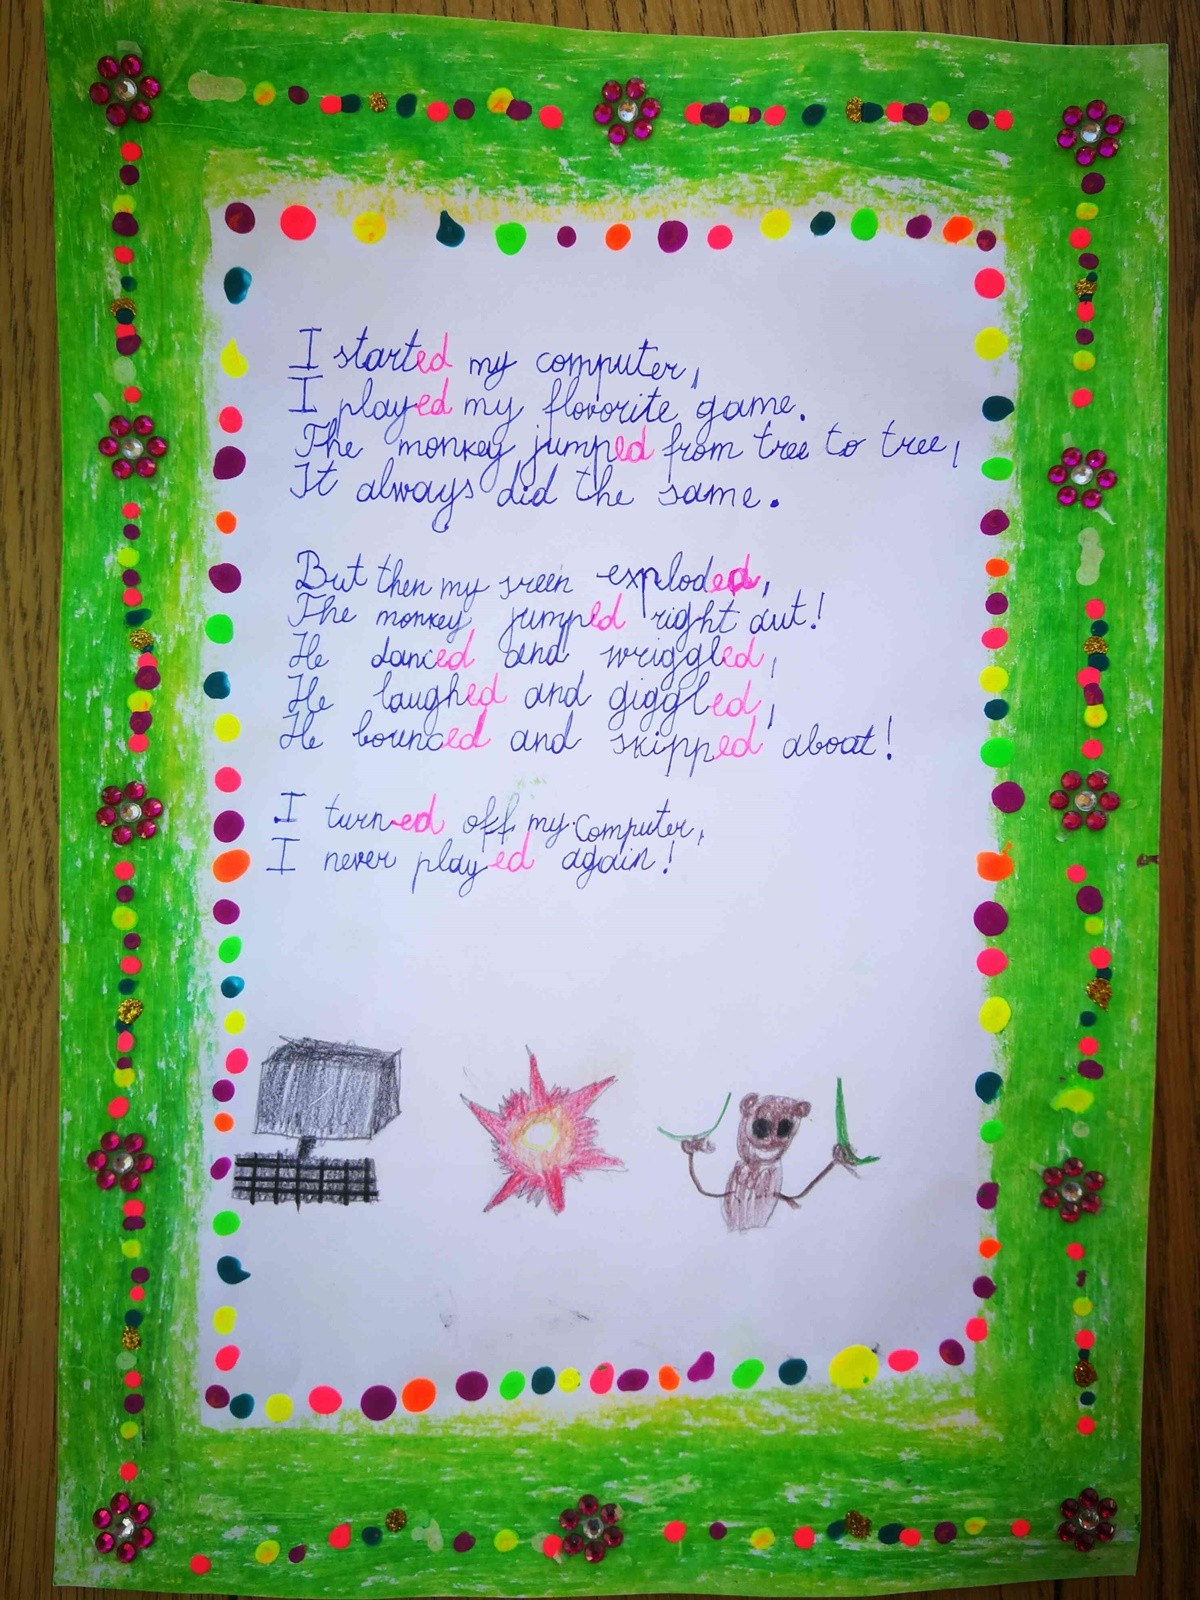 I started my computer,
I played my flovorite game.
The monkey jumped from tree to tree,
It always did the same.
But then my sreen exploded,
The monkey jumped right out!
He danced and wriggled,
He laughed and giggled,
He bounced and skipped about!
I turned off my computer,
I never played again!